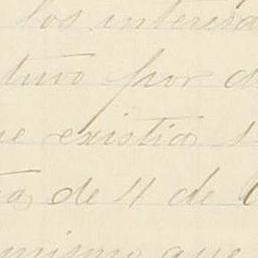 los interesa
tuvo por d
ue existia
de 4 de
mismo que